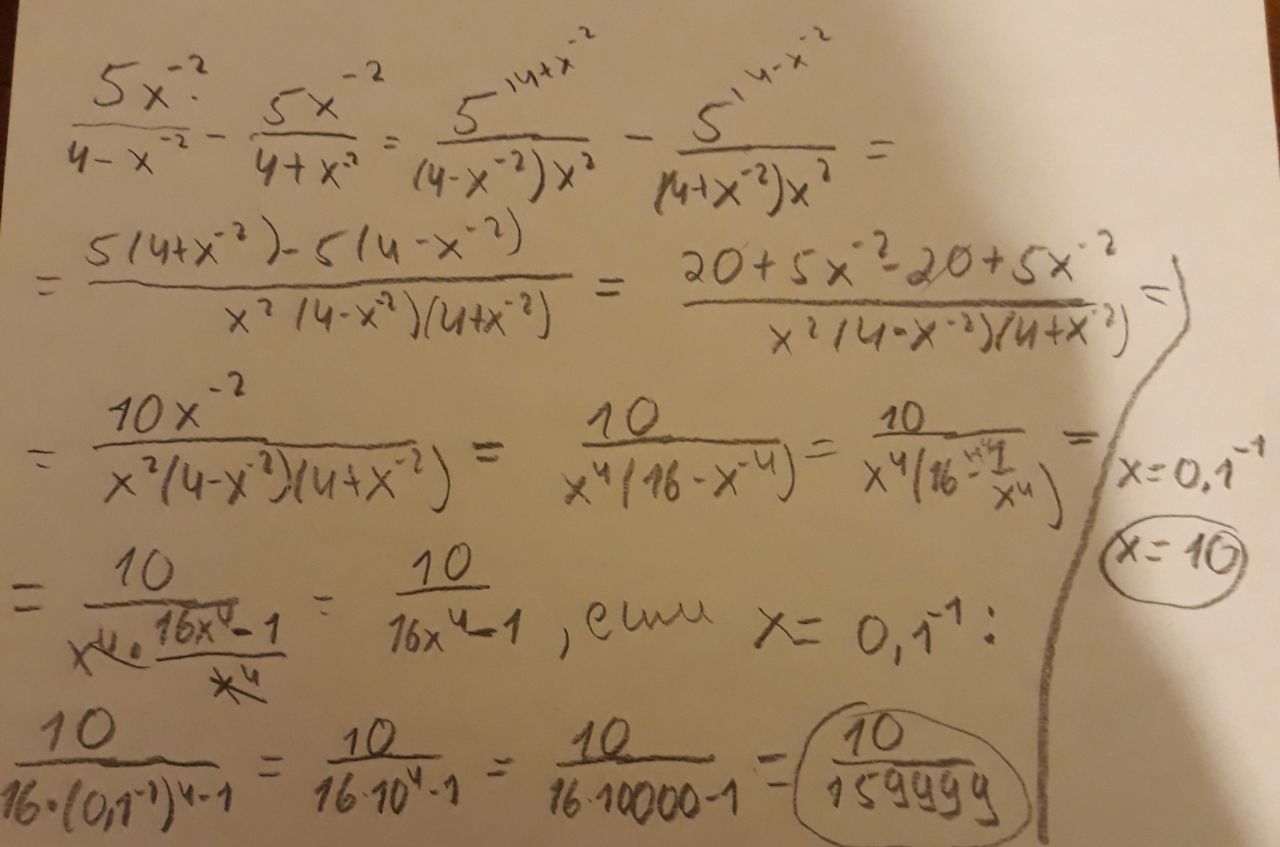 5x⁻²/(4-x⁻²) - 5x⁻²/(4+x⁻²) = 5^(⁾4+x⁻²)/((4-x⁻²)x²) - 5^(⁾4-x⁻²)/((4+x⁻²)x²) =
= (5(4+x⁻²)-5(4-x⁻²))/(x²(4-x⁻²)(4+x⁻²)) = (20+5x⁻²-20+5x⁻²)/(x²(4-x⁻²)(4+x⁻²)) =
= 10x⁻²/(x²(4-x⁻²)(4+x⁻²)) = 10/(x⁴(16-x⁻⁴)) = 10/(x⁴(16-1/x⁴)) =
x=0,1⁻¹
x=10
= 10/(x⁴·(16x⁴-1)/x⁴) = 10/(16x⁴-1), если x=0,1⁻¹:
10/(16·(0,1⁻¹)⁴-1) = 10/(16·10⁴-1) = 10/(16·10000-1) = 10/159999